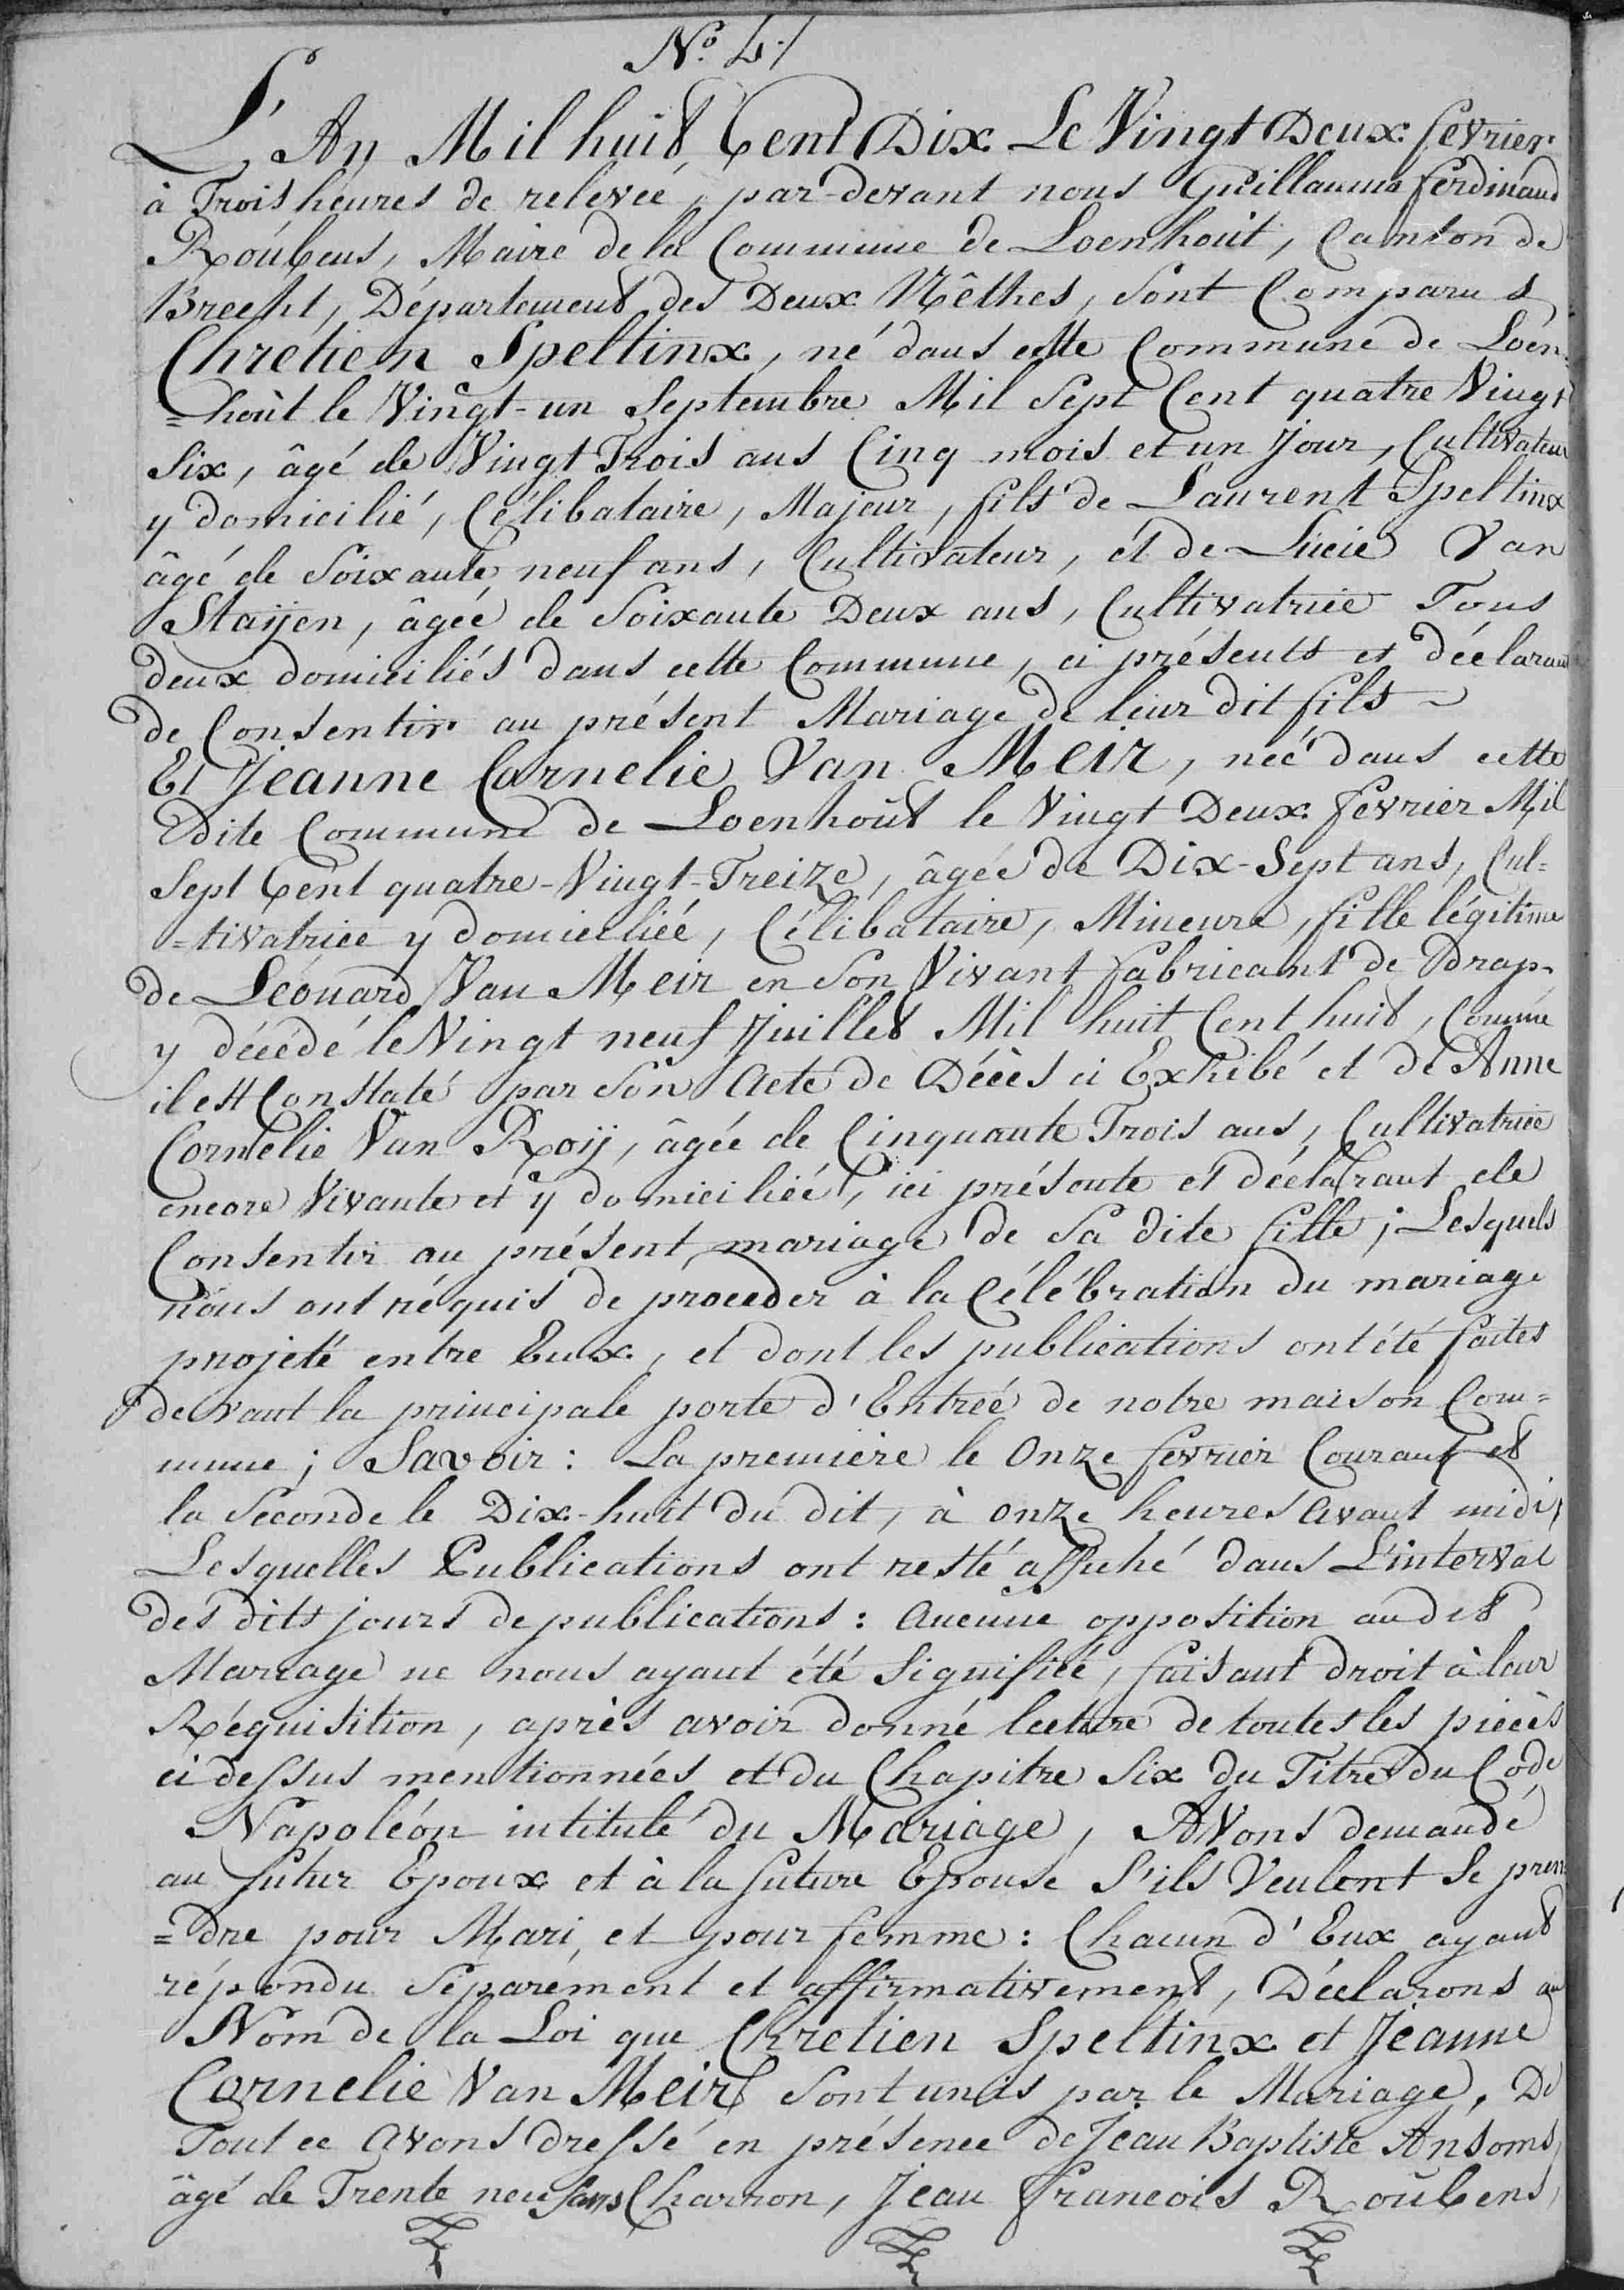 No. 4./
L'An Mil huit Cent Dix Le Vingt Deux fevrier
à Trois heures de relevée, par-devant nous Guillaume ferdinand
Roúbens, Maire de la Commune de Loenhoút, Canton de
Brecht, Département des Deux Nêthes, sont Comparus
Chretien Speltinx, né dans cette Commune de Loen-
=hoût le Vingt-un Septembre Mil Sept Cent quatre Vingt
Six, âgé de Vingt Trois ans Cinq mois et un Jour, Cultivateur
y domicilié, Célibataire, Majeur, fils de Laurent Speltinx
âgé de Soixante neuf ans, Cultivateur, et de Lucie Van
Staijen, âgée de Soixante Deux ans, Cultivatrice Tous
deux domiciliés dans cette Commune, ci présents et déclarant
de Consentir au présent Mariage de leur dit fils ~
Et Jeanne Cornelie Van Meir, née dans cette
dite Commune de Loenhoût le Vingt Deux fevrier Mil
Sept Cent quatre-Vingt-Treize, âgée de Dix-Sept ans, Cul=
=tivatrice y domiciliée, Célibataire, Mineure, fille légitime
de Léonard Van Meir en Son Vivant fabricant de Drap
y décédé le Vingt neuf Juillet Mil huit Cent huit, Comme
il est Constaté par Son Acte de Décès ci Exhibé et de Anne
Cornelie Van Roij, âgée de Cinquante Trois ans, Cultivatrice
encore Vivante et y domiciliée, ici présente et déclarant de
Consentir au présent mariage de Sa dite fille; Lesquels
nous ont réquis de proceder à la Célébration du mariage
projeté entre Eux, et dont les publications ont été faites
devant la principale porte d'Entrée de notre maison Com=
mune; Savoir: La première le Onze fevrier Courant et
la Seconde le Dix-huit du dit, à onze heures avant midi,
Lesquelles Publications ont resté affiché dans L'interval
des dits jours de publications: Aucune opposition au dit
Mariage ne nous ayant été Signifiée, faisant droit à leur
Réquisition, après avoir donné lecture de toutes les pièces
ci dessus mentionnées et du Chapitre Six du Titre du Code
Napoléon intitulé du Mariage, AVons demandé
au futur Epoux et à la future Epouse S'ils Veulent Se pren
=dre pour Mari et pour femme: Chacun d'Eux ayant
répondu Séparément et affirmativement, Déclarons au
Nom de la Loi que Chretien Speltinx et Jeanne
Cornelie Van Meir Sont unis par le Mariage, De
Tout ce Avons dressé en présence de Jean Baptiste Ansoms,
âgé de Trente neuf ans Charron, Jean francois Roûbens,